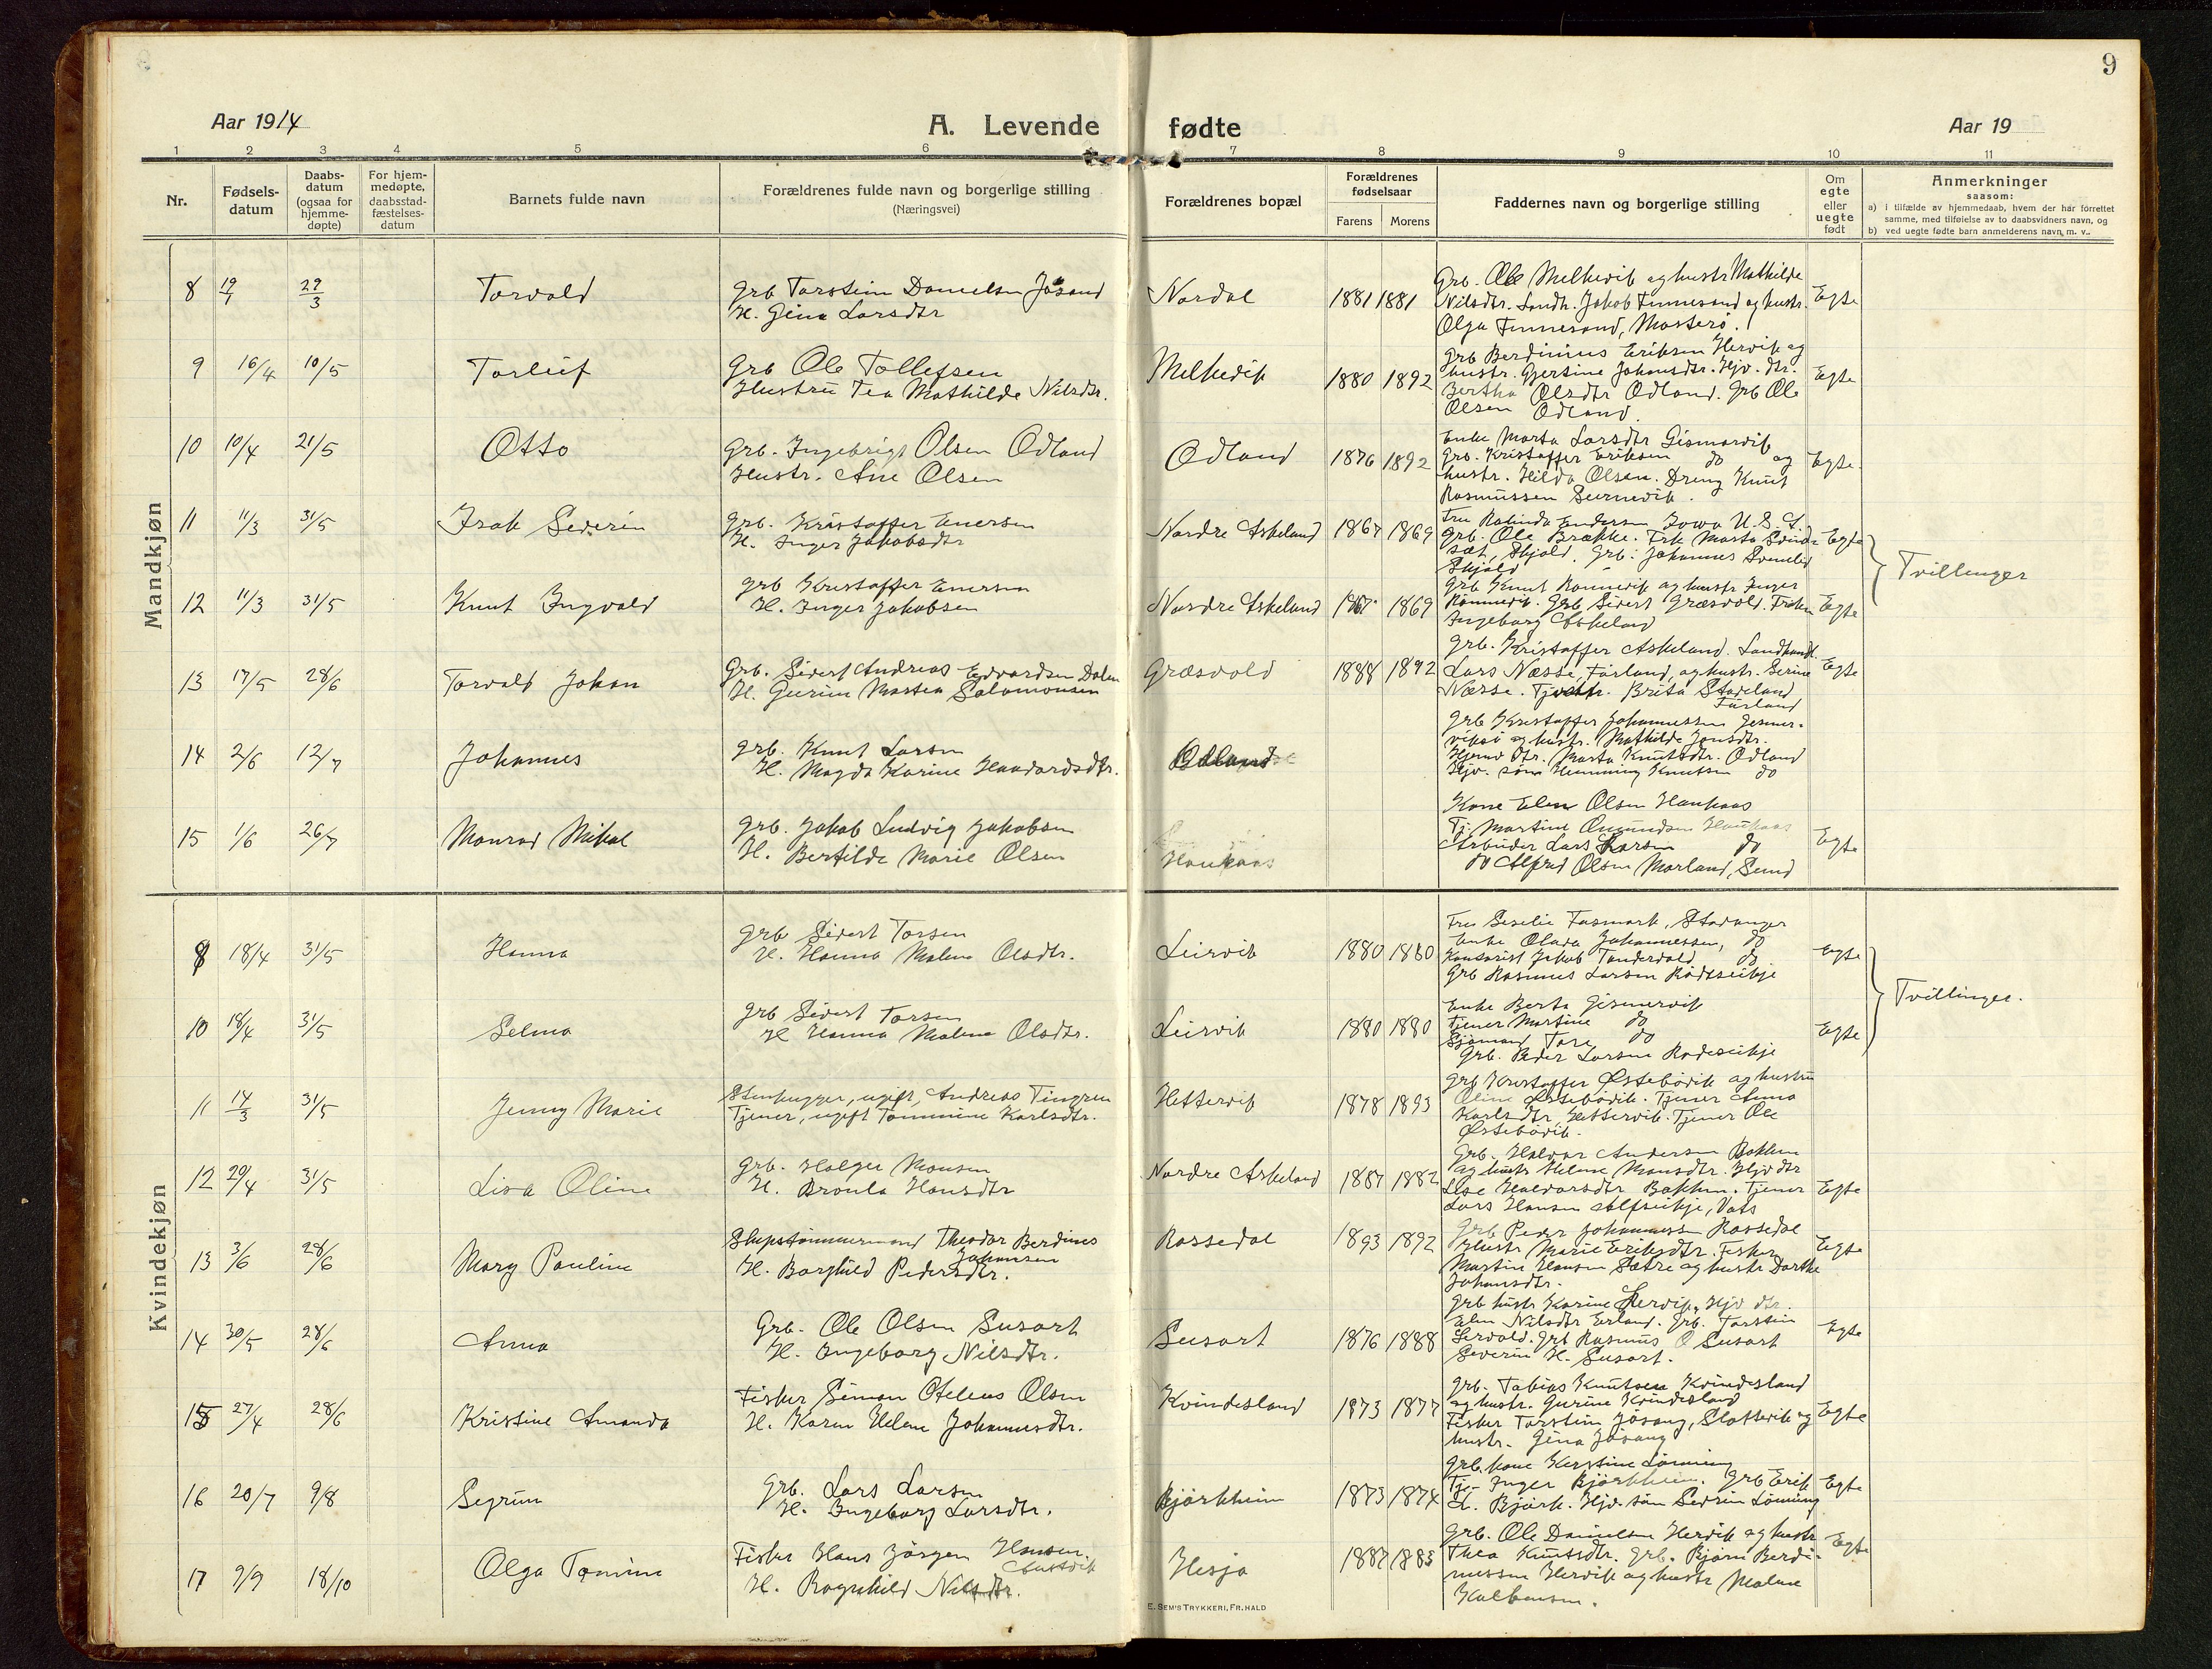 9
Aar 1914
A. Levende fødte
Aar 19
1 2 3 4 5 6 7 8 9 10 11
Nr.
Fødsels-
datum
Daabs-
datum
(ogsaa for
hjemme-
døpte)
For hjem-
medøpte,
daabsstad-
fæstelses-
datum
Barnets fulde navn
Forældrenes fulde navn og borgerlige stilling
(Næringsvei)
Forældrenes bopæl
Forældrenes
fødselsaar
Farens Morens
Faddernes navn og borgerlige stilling
Om
egte
eller
uegte
født
Anmerkninger
saasom:
a) i tilfælde av hjemmedaab, hvem der har forrettet
samme, med tilføielse av to daabsvidners navn, og
b) ved uegte fødte barn anmelderens navn m. v..
Mandkjøn
8 19/1 29/3 Torvald
Grb Torstein Danielsen Jøsand
H. Gina Larsdtr
Nordal 1881 1881
Grb. Ole Melkevik og hustr Mathilde
Nilsdtr. Landh. Jakob Finnesand og hustr.
Olga Finnesand, Mosterø.
Egte
9 16/4 10/5 Torleif
Grb Ole Tollefsen
Hustru Tea Mathilde Nilsdtr.
Melkevik 1880 1892
Grb Berdinius Eriksen Hervik og
hustr. Gjertine Johansdtr. Hjv. dtr.
Bertha Olsdtr Odland. Grb Ole
Olsen Odland.
Egte
10 10/4 21/5 Otto
Grb. Ingebrigt Olsen Odland
Hustr. Ane Olsen
Odland 1876 1892
Enke Marta Larsdtr Gismarvik
Grb. Kristoffer Eriksen do og
hustr. Hilda Olsen. Dreng Knut
Rasmussen
Egte
11 11/3 31/5 Isak Severin
Grb. Kristoffer Enersen
H. Inger Jakobsdtr
Nordre Askeland 1867 1869
Fru Andersen Iowa U.S.A.
Grb. Ole Brække. Frk Marta
Skjold. Grb. Johannes
Skjold
Egte
Tvillinger
12 11/3 31/5 Knut Ingvald
Grb Kristoffer Enersen
H. Inger Jakobsen
Nordre Askeland 1867 1869
Grb Knut Rønnevik og hustr Inger
Rønnevik. Grb Sivert Græsvold. Frøken
Ingeborg Askeland
Egte
13 17/5 28/6 Torvald Johan
Grb. Sivert Andreas Edvardsen Dalen
H. Gurine Martea Salomonsen
Græsvold 1888 1892
Grb. Kristoffer Askeland. Landhandl.
Lars Næsse, Førland, og hustr. Serine
Næsse. Brita Stadeland
Førland
Egte
14 2/6 12/7 Johannes
Grb. Knut Larsen
H. Magda Karine Haavardsdtr.
Odland
Grb Kristoffer Johannessen Gesmer-
viksi og hustr. Mathilde Jonsdtr.
Hjemv dtr. Marta Knutsdtr. Odland
Hjv. søn Henning Knutsen do
15 1/6 26/7 Monrad Mikal
Grb. Jakob Ludvig Jakobsen
H. Bertilde Marie Olsen
Haukaas
Kone Elen Olsen Haukaas
Tj. Martine Haukaas
Arbeider Lars Larsen do
do Alfred Olsen Marland, Sund
Egte
Kvindekjøn
9 18/4 31/5 Hanna
Grb Sivert Torsen
H. Hanna Malene Olsdtr.
Leirvik 1880 1880
Fru Seselie Fasmark, Stavanger
Enke Olava Johannessen, do
Jakob Tendevold do
Grb Rasmus Larsen
Egte
Tvillinger.
10 18/4 31/5 Selma
Grb Sivert Torsen
H Hanna Malene Olsdtr.
Leirvik 1880 1880
Enke Berta Gismervik
Tjener Martine do
Sjømand Tore do
Grb. Peder Larsen
Egte
11 14/3 31/5 Jenny Marie
Stenhugger, ugift, Andreas Tingren
Tjener, ugift Tommine Karlsdtr.
Hettervik 1878 1893
Grb Kristoffer Østebøvik og hustru
Oline Østebøvik. Tjener Anna
Karlsdtr, Hettervik. Tjener Ole
Østebøvik.
12 29/4 31/5 Lisa Oline
Grb. Holger Monsen
H. Bronla Hansdtr
Nordre Askeland 1887 1882
Grb. Halvor Andersen Bakken
og hustr Helene Monsdtr. Hjv dtr
Lise Halvorsdtr Bakken. Tjener
Lars Hansen Vats
Egte
13 3/6 28/6 Mary Pauline
Skipstømmermand Theodor Berdines
Johansen
H. Borghild Pedersdtr.
Rossedal 1893 1892
Grb Peder Johannessen Rossedal
Hustr Marie Eriksdtr. Fisker
Martin Hansen Sætre og hustr Dorthe
Johansdtr.
Egte
14 30/5 28/6 Anna
Grb. Ole Olsen Susort
H. Ingeborg Nilsdtr.
Susort 1876 1888
Grb hustr Karine Lervik, Hjv dtr.
Elen Nilsdtr Erland. Grb. Torstein
Lervold. Grb Rasmus O Susort
Severin H. Susort.
Egte
15 27/4 28/6 Kristine Amanda
Fisker Simon Oteleus Olsen
H. Karen Helene Johannesdtr.
Kvindesland 1873 1877
Grb. Tobias Knutsen Kvindesland
og hustr. Gurine Kvindesland
Fisker Torstein Jøsang, Slottevik og
hustr. Gina Jøsang
Egte
16 20/7 9/8 Segrun
Grb. Lars Larsen
H. Ingeborg Larsdtr.
Bjørkheim 1873 1874
Grb. kone Kirstine Lønning
Tje. Inger Bjørkheim. Grb Erik
L. Bjørk. Hjv. søn Severin Lønning
Egte
17 9/9 18/10 Olga Tomine
Fisker Hans Jørgen Hansen.
H. Ragnhild Nilsdtr.
Hesjo 1887 1883
Grb. Ole Danielsen Hervik og hustr
Thea Knutsdtr. Grb. Bjørn Berdi-
nessen Hervik og hustr Malene
Egte
E. SEM'S TRYKKERI, FR.HALD